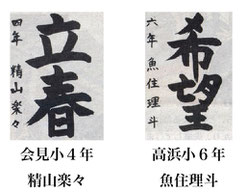 立春
四年 精山楽々
会見小4年
精山楽々
希望
六年 魚住理斗
高浜小6年
魚住理斗